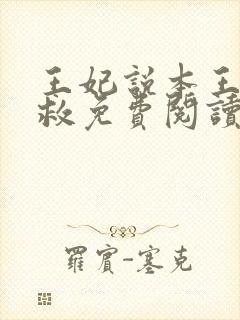 王妃說本王
救免費閱讀
羅賓-塞克